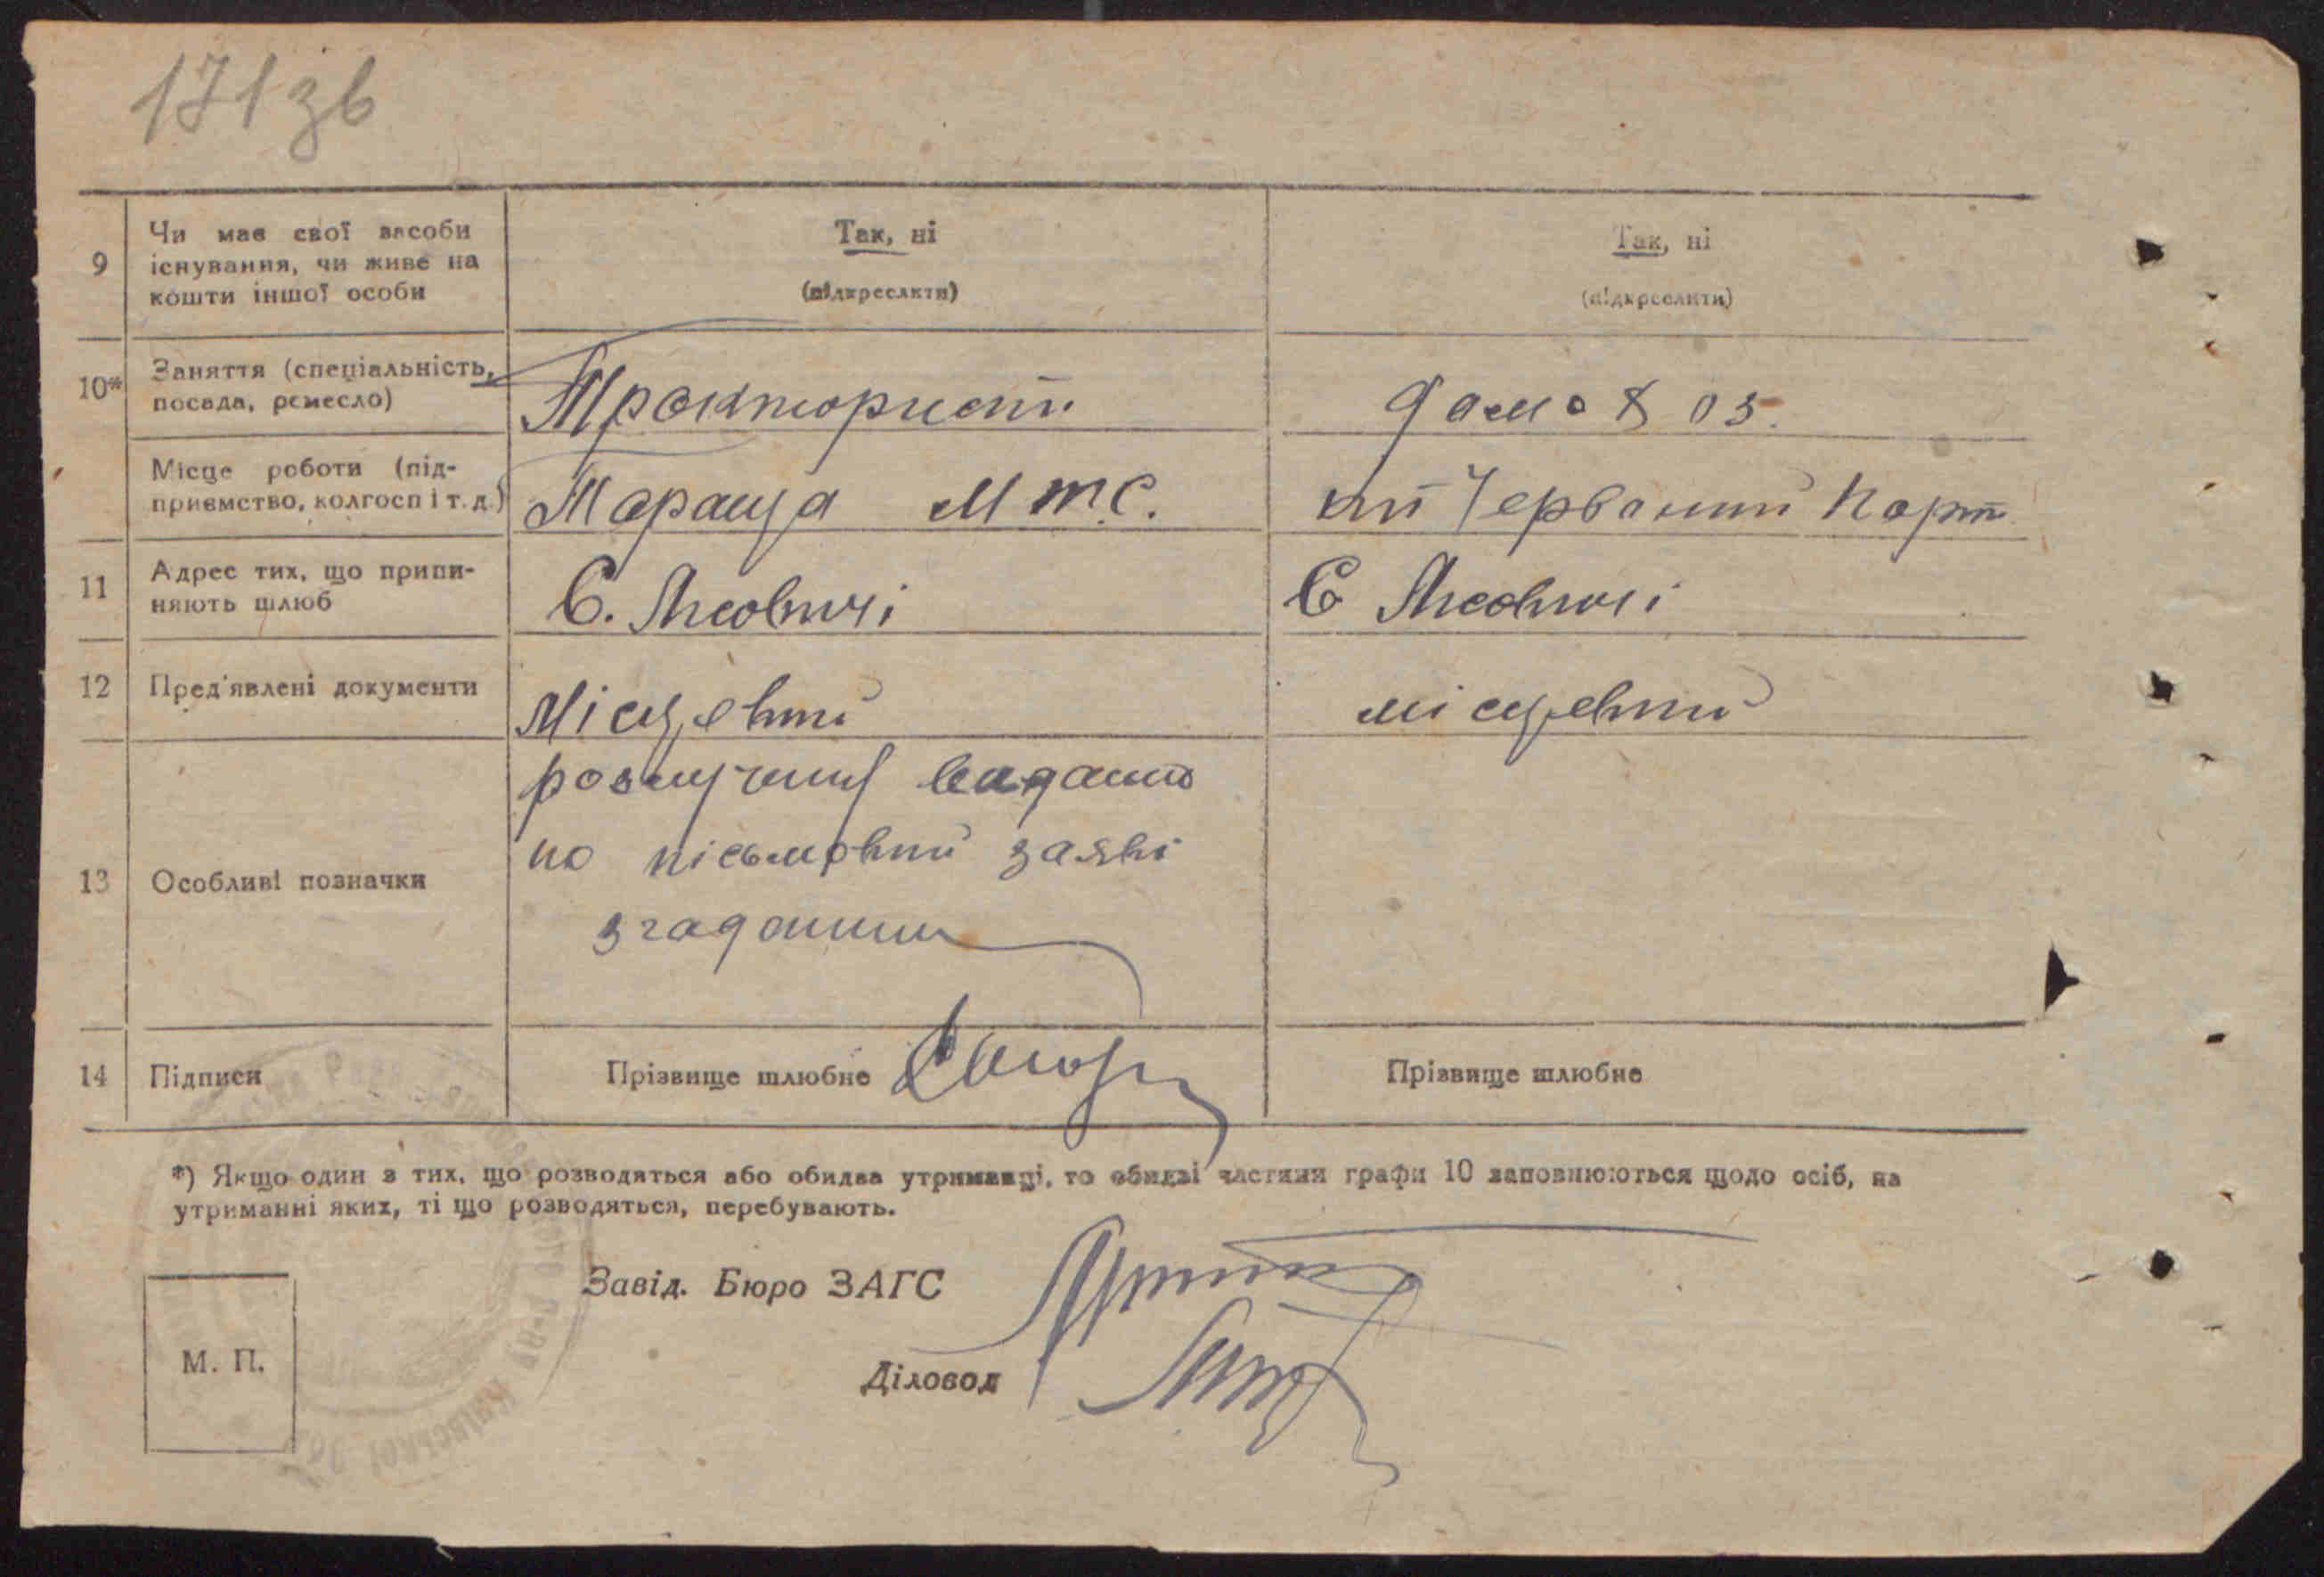 171зв
9
Чи має свої засоби
існування, чи живе на
кошти іншої особи
Так, ні
(підкреслити)
Так, ні
(підкреслити)
10*
Заняття (спеціальність,
посада, ремесло)
Тракторист
домогоз.
Місце роботи (під-
приємство, колгосп і т. д.)
Тараща М.Т.С.
Червоний Парт
11
Адрес тих, що припи-
няють шлюб
С. Лісовичі
С Лісовичі
12
Пред'явлені документи
Місцевий
місцевий
13
Особливі позначки
розлучину видано
по пісьмовий заяві
згаданим
14
Підписи
Прізвище шлюбне
Прізвище шлюбне
*) Якщо один з тих, що розводяться або обидва утриманці, то обидві частини графи 10 заповнюються щодо осіб, на
утриманні яких, ті що розводяться, перебувають.
Завід. Бюро ЗАГС
Діловод
М. П.
Київської